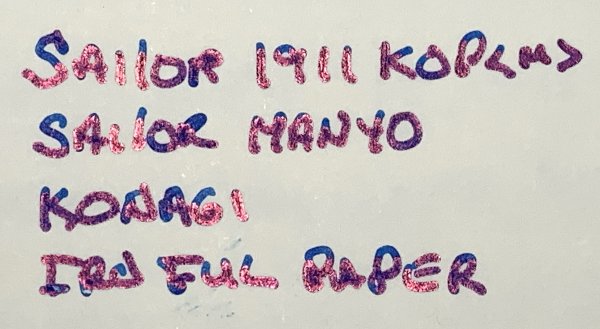 SAILOR 1911 KOP <M>
SAILOR MANYO
KONAGI
IROFUL PAPER